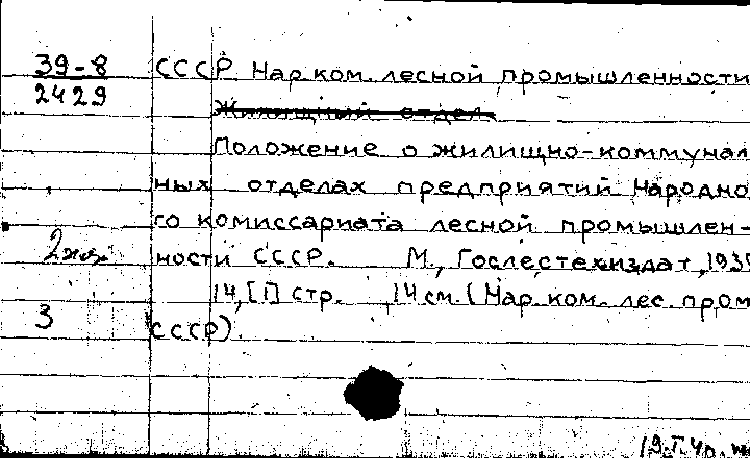 39-8 СССР Нар.ком. лесной промышленности
2429 Жилищный отдел.
Положение о жилищно-коммунал
ных отделах предприятий Народно
го комиссариата лесной промышлен-
2экз ности СССР. М., Гослестехиздат, 1939
14, [1] стр. , 14 см. (Нар.ком. лес. пром
3 СССР).
19.I.40.